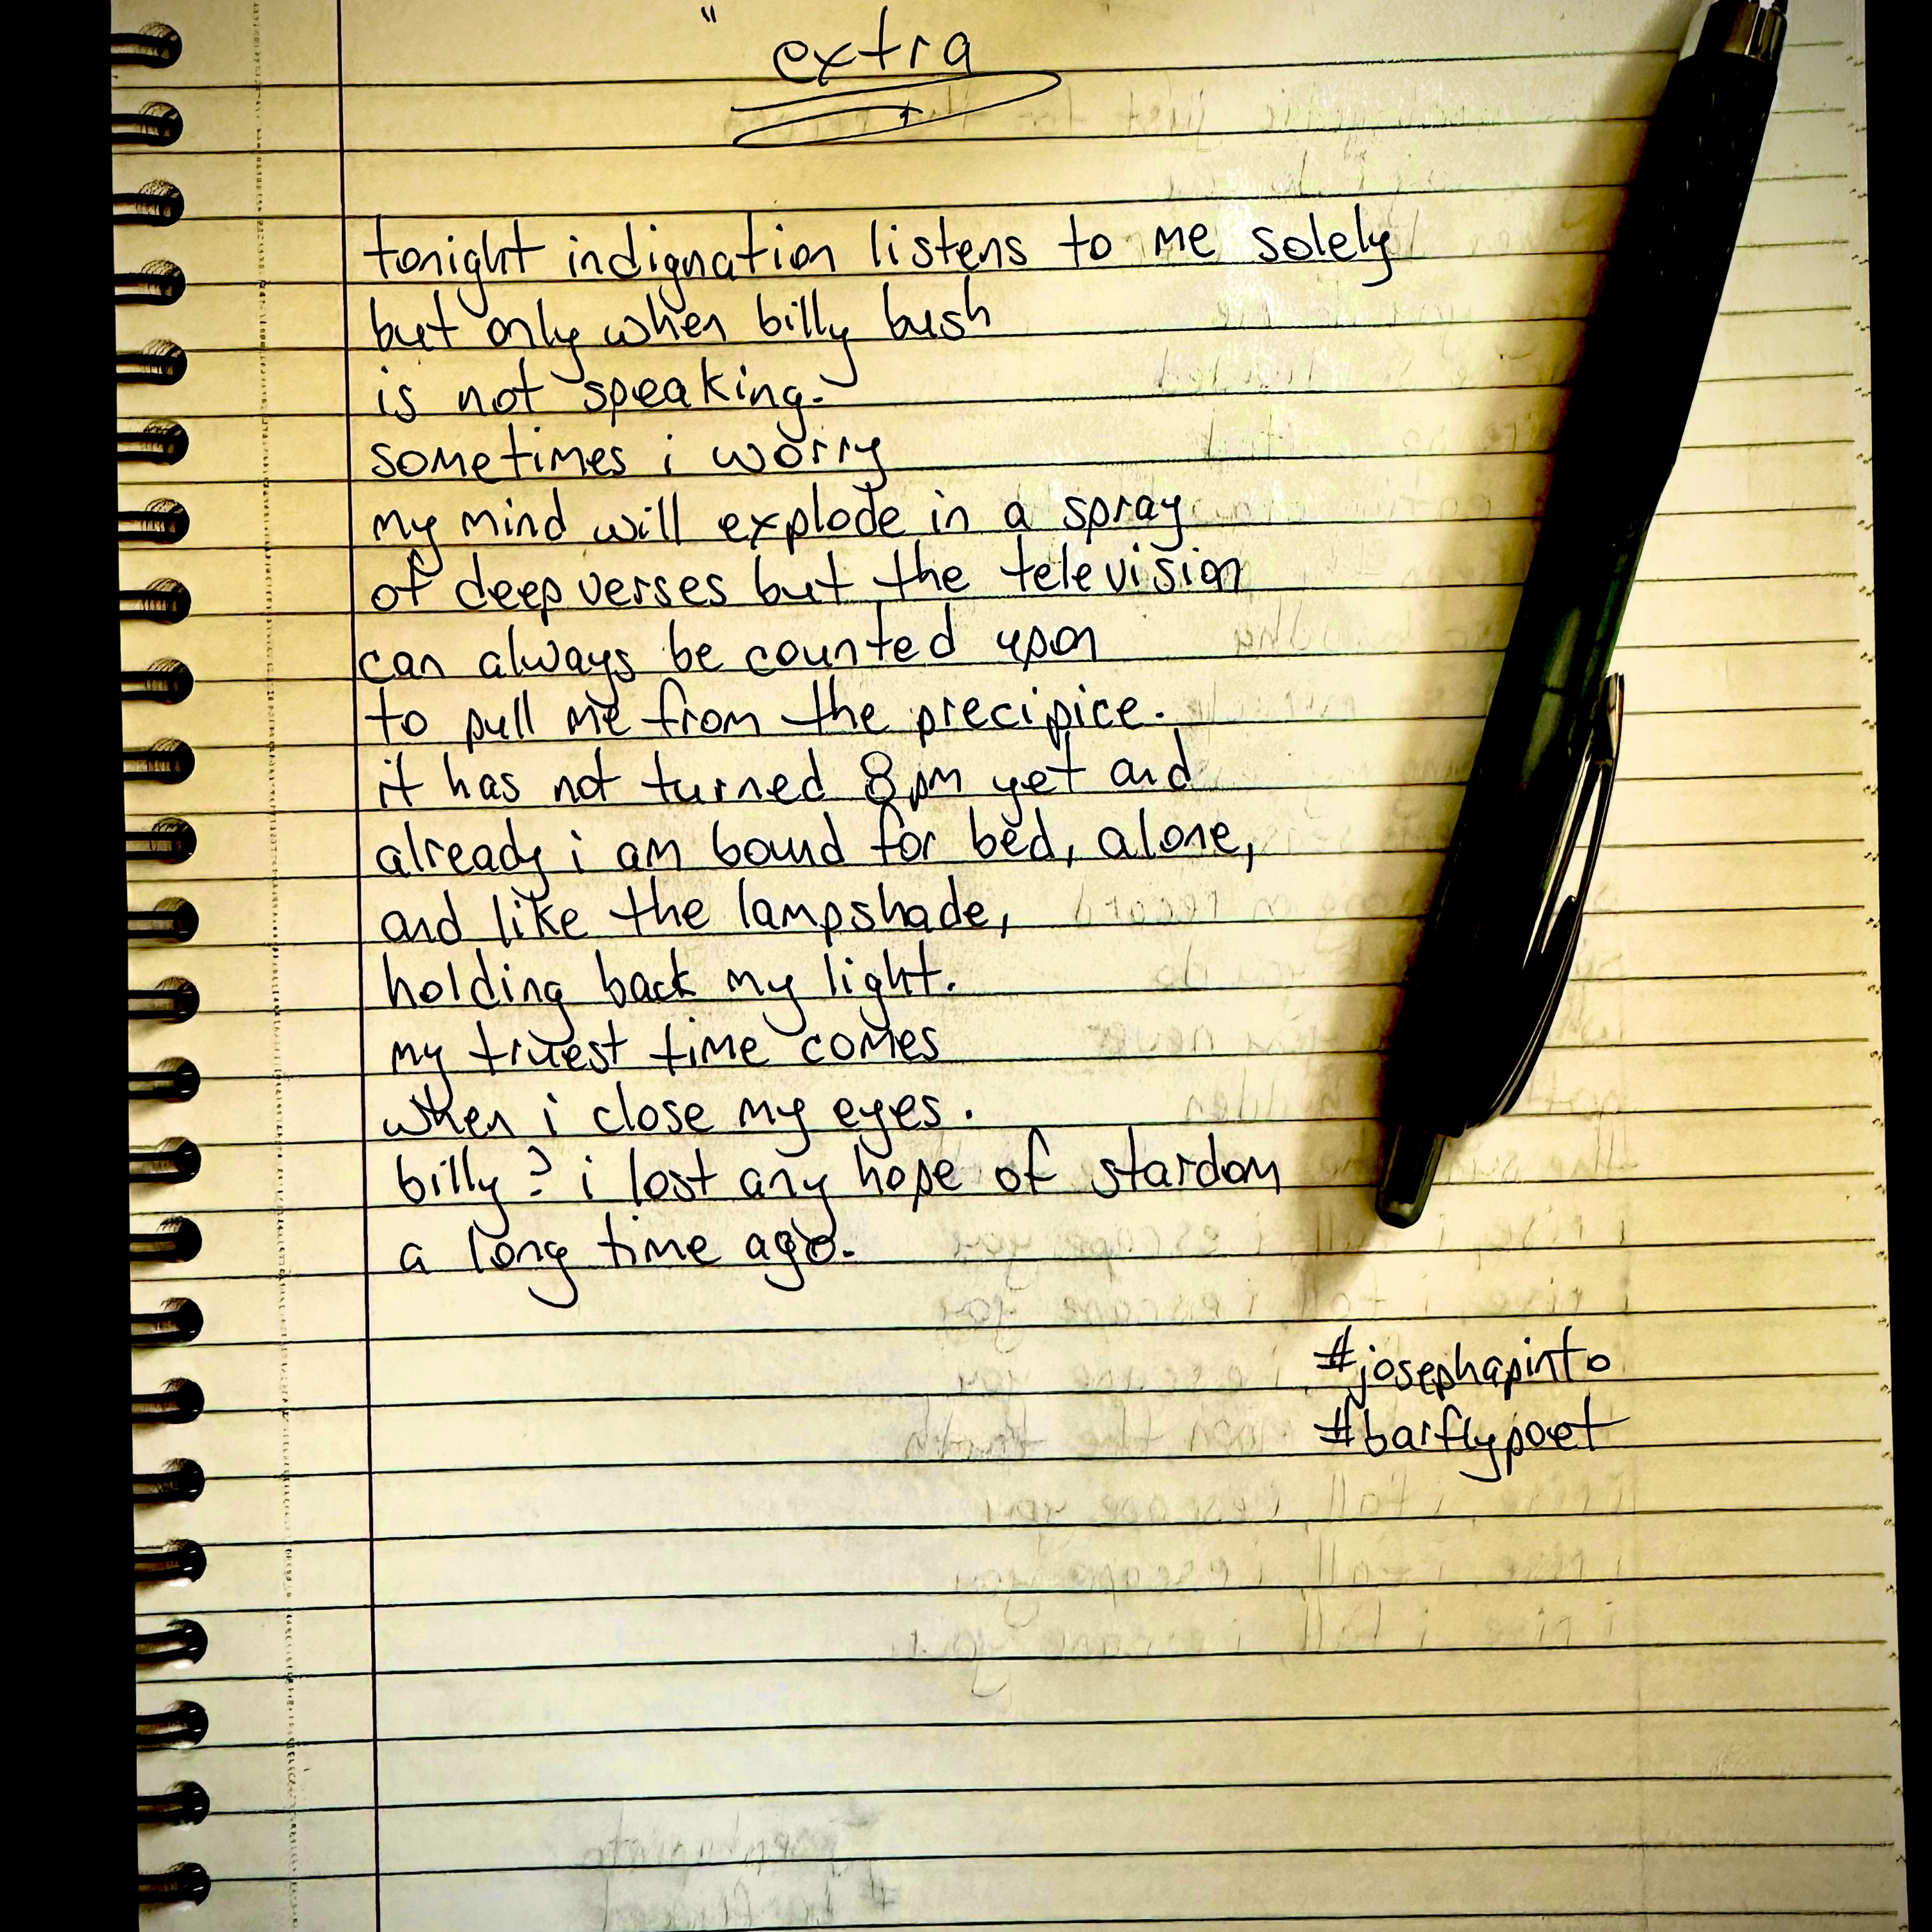 extra
tonight indignation listens to me solely
but only when billy bush
is not speaking.
sometimes i worry
my mind will explode in a spray
of deep verses but the television
can always be counted upon
to pull me from the precipice.
it has not turned 8pm yet and
already i am bound for bed, alone,
and like the lampshade,
holding back my light.
my truest time comes
when i close my eyes.
billy? i lost any hope of stardom
a long time ago.
#josephapinto
#barflypoet